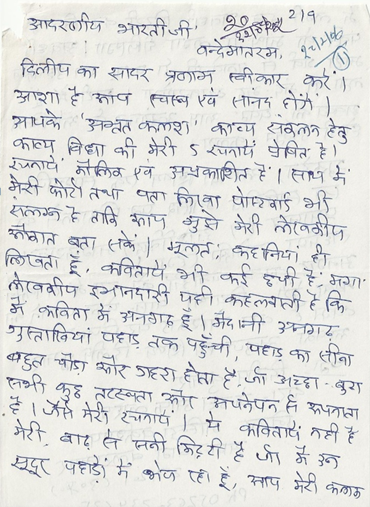 आदरणीय भारती जी । 2/9
वन्देमातरम
दिलीप का सादर प्रणाम स्वीकार करें ।
आशा है आप स्वस्थ एवं सानंद होंगे ।
आपके अमृत कलश काव्य संकलन हेतु
काव्य विधा की मेरी 5 रचनायें प्रेषित है ।
रचनायें मौलिक एवं अप्रकाशित हैं । साथ में
मेरी फोटो तथा पता लिखा पोस्टकार्ड भी
संलग्न है ताकि आप मुझे मेरी लेखकीय
औकात बता सकें । मूलतः कहानियां ही
लिखता हूँ, कवितायें भी कई छपी हैं, मगर
लेखकीय इमानदारी यही कहलवाती है कि
मैं कविता में अनगढ़ हूँ । मैदानी अनगढ़
गुस्ताखियां पहाड़ तक पहुँची, पहाड़ का सीना
बहुत चौड़ा और गहरा होता है, जो अच्छा-बुरा
सभी कुछ तटस्थता और अपनेपन से अपनाता
है । जैसे मेरी रचनायें । ये कवितायें नहीं है
मेरी, बाढ़ से सनी मिट्टी है जो मैं उन
सुदूर पहाड़ों में भेज रहा हूँ, आप मेरी कलम